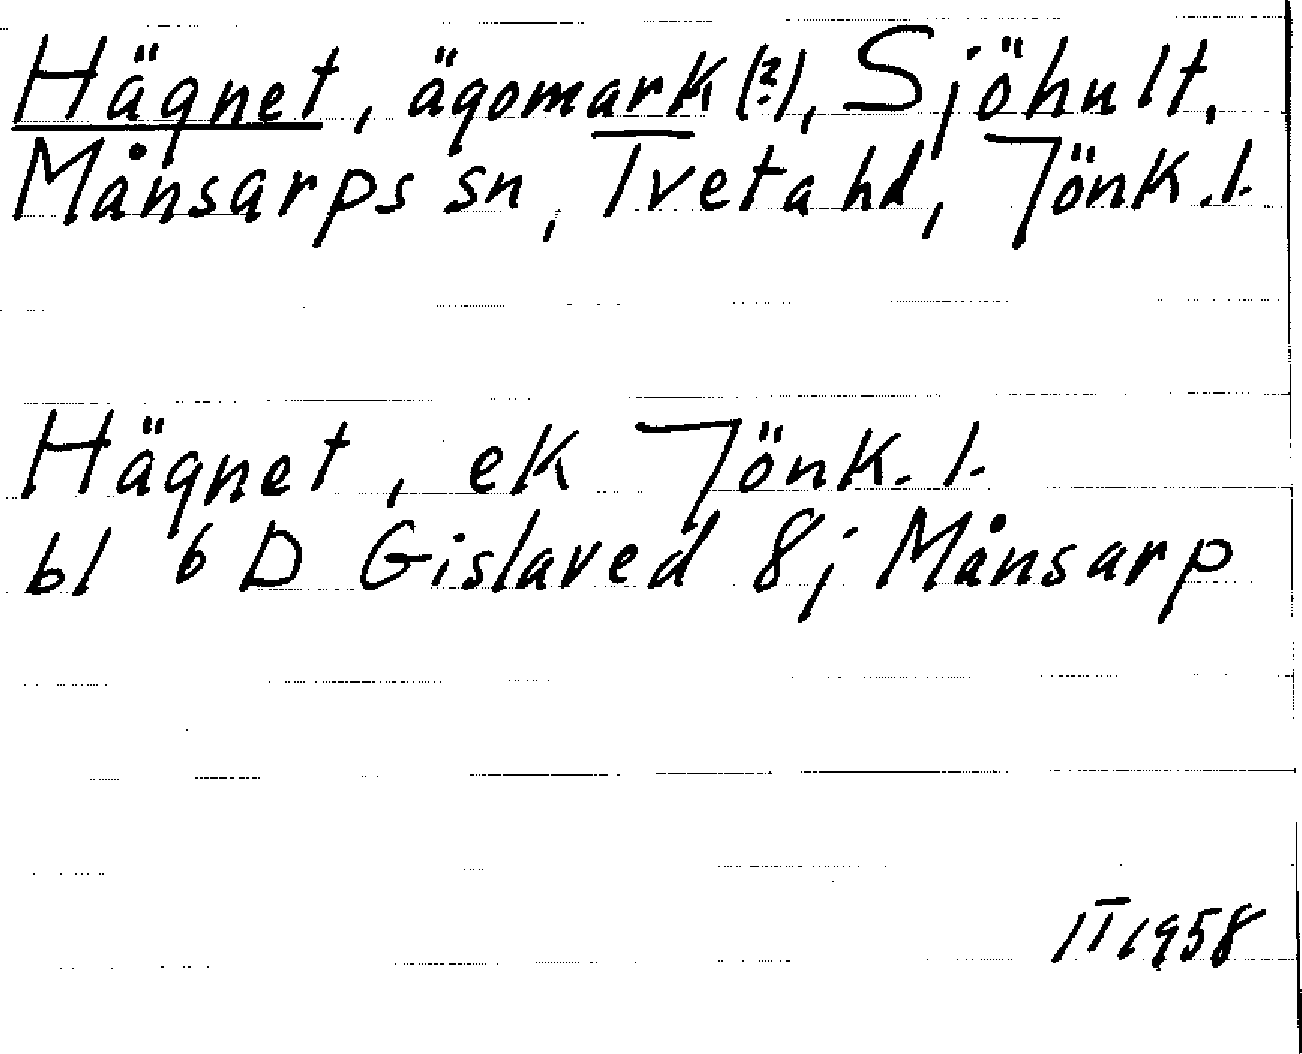 Hägnet, ägomark (?), Sjöhult,
Månsarps sn, Tveta hd, Jönk. l.
Hägnet, ek Jönk. l.
bl 6 D Gislaved 8j Månsarp
IT 1958